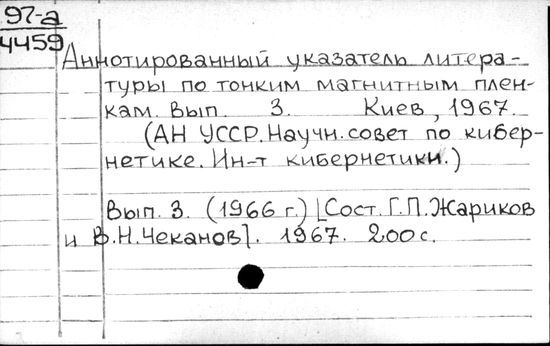 97-а
4459
Аннотированный указатель литера-
туры по тонким магнитным плен-
кам. Вып. 3. Киев, 1967.
(АН УССР. Научн. совет по кибер-
нетике. Ин-т кибернетики.)
Вып. 3. (1966 г.) [Сост. Г.П. Жариков
и В.Н. Чеканов]. 1967. 200 с.